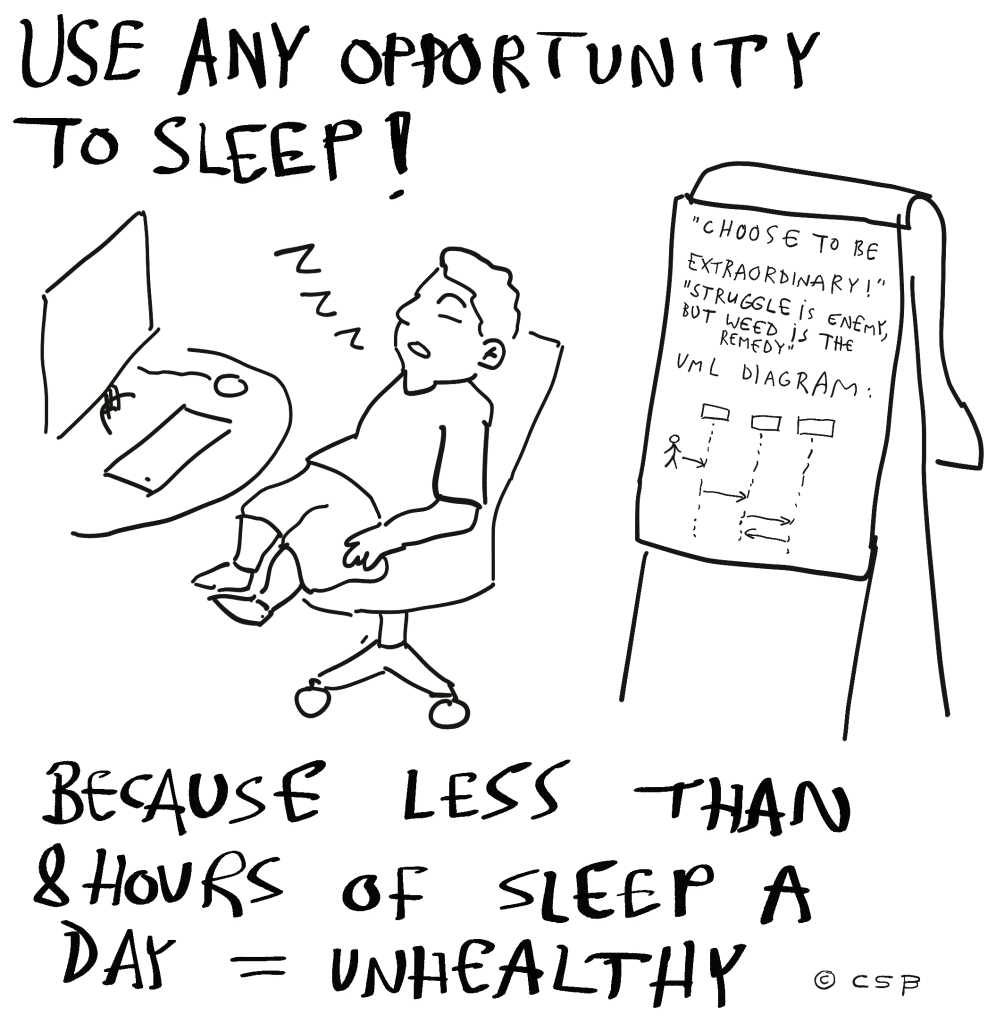 USE ANY OPPORTUNITY
TO SLEEP!
Z
Z
Z
"CHOOSE TO BE
EXTRAORDINARY!"
"STRUGGLE iS ENEMY,
BUT WEED iS THE
REMEDY"
UML DIAGRAM:
BECAUSE LESS THAN
8 HOURS OF SLEEP A
DAY = UNHEALTHY
© CSB